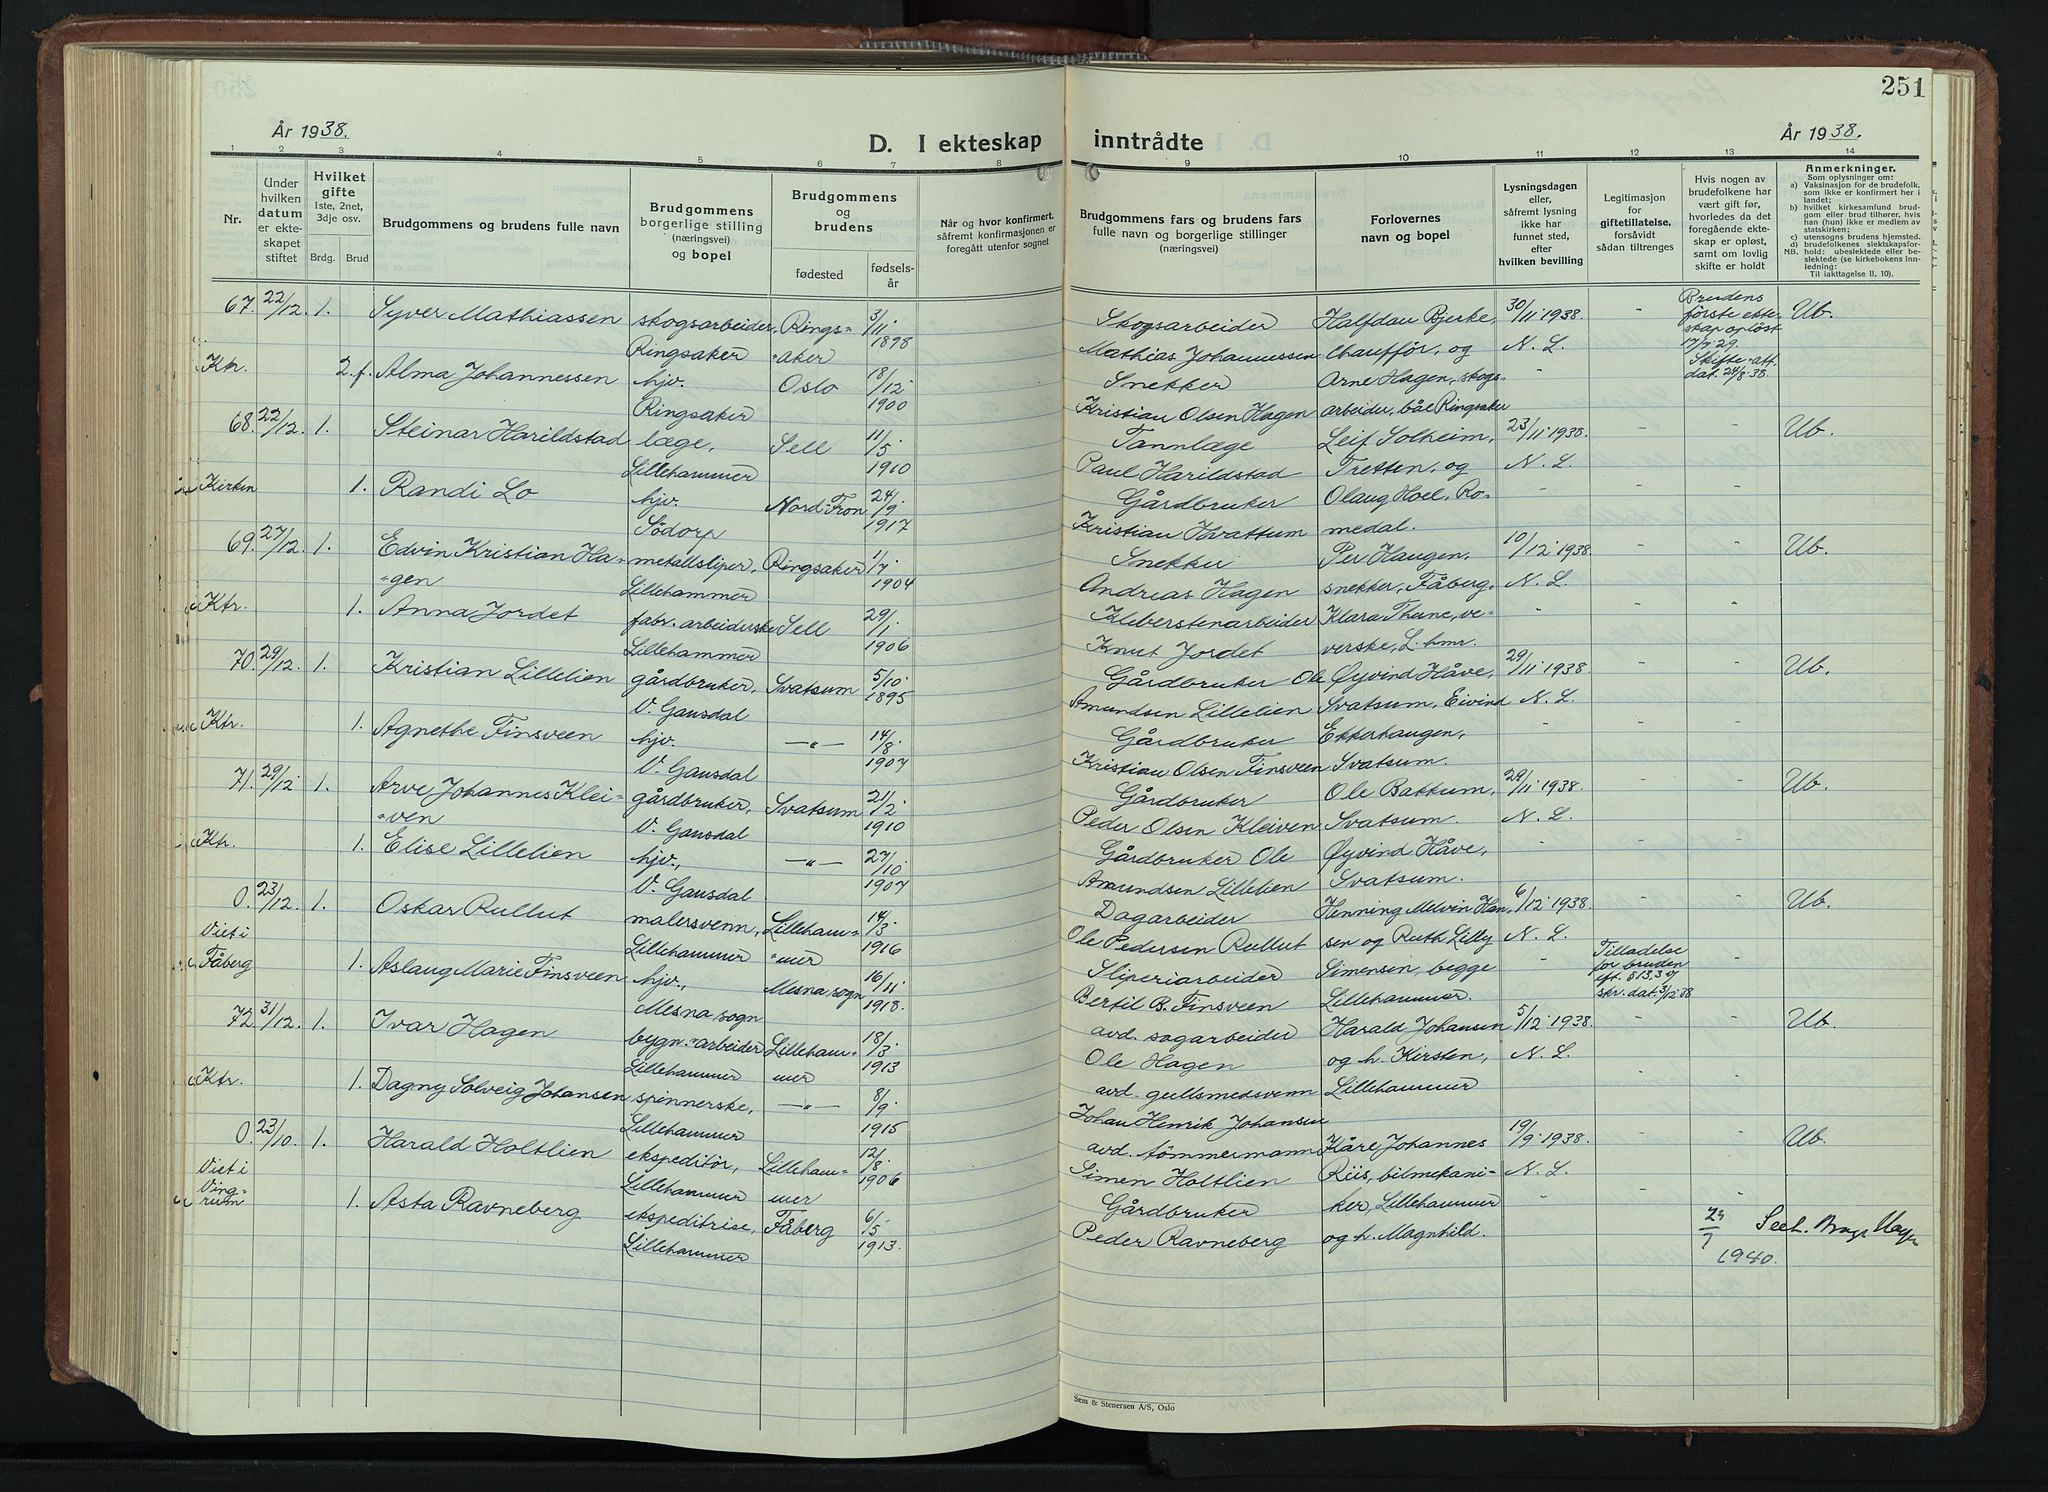 251
År 1938.
D. I ekteskap inntrådte
År 1938.
1 2 3 4 5 6 7 8 9 10 11 12 13 14
Nr.
Under hvilken datum er ekteskapet stiftet
Hvilket gifte 1ste, 2net, 3dje osv.
Brdg. Brud
Brudgommens og brudens fulle navn
Brudgommens borgerlige stilling (næringsvei) og bopel
Brudgommens og brudens
fødested fødselsår
Når og hvor konfirmert, såfremt konfirmasjonen er foregått utenfor sognet
Brudgommens fars og brudens fars fulle navn og borgerlige stillinger (næringsvei)
Forlovernes navn og bopel
Lysningsdagen eller, såfremt lysning ikke har funnet sted, efter hvilken bevilling
Legitimasjon for giftetillatelse, forsåvidt sådan tiltrenges
Hvis nogen av brudefolkene har vært gift før, hvorledes da det foregående ekteskap er opløst, samt om lovlig skifte er holdt
Anmerkninger.
Som oplysninger om:
a) Vaksinasjon for de brudefolk, som ikke er konfirmert her i landet;
b) hvilket kirkesamfund brudgom eller brud tilhører, hvis han (hun) ikke er medlem av statskirken;
c) utensogns brudens hjemsted.
d) brudefolkenes slektskapsforhold: ubeslektede eller beslektede (se kirkebokens innledning:
NB.
Til iakttagelse II. 10).
67. 22/12. 1. Syver Mathiassen skogsarbeider, Ringsaker Rings-aker 3/11. 1898 Skogsarbeider Mathias Johannessen Halfdan Bjerke, chauffør, og 30/11. 1938. N. L. - Brudens første ekteskap opløst 17/9.29. Skifte-att. dat. 24/8.38. Ub.
Ktr. 2. f. Alma Johannessen hjv. Ringsaker Oslo 18/12. 1900 Snekker Kristian Olsen Hagen Arne Hagen, skogsarbeider, båe Ringsaker
68. 22/12. 1. Steinar Harildstad læge, Lillehammer Sell 11/5 1910 Tannlæge Paul Harildstad Leif Solheim, Tretten, og 23/11. 1938. N. L. - - Ub.
Kirken 1. Randi Lo hjv. Södorp Nord-Fron 24/9. 1917 Gårdbruker Kristian Hvattum Olaug Hoel, Romedal.
69. 27/12. 1. Edvin Kristian Ha-gen metallsliper, Lillehammer Ringsaker 1/7. 1904 Snekker Andreas Hagen Per Haugen, snekker, Fåberg. 10/12. 1938. N. L. - - Ub.
Ktr. 1. Anna Jordet fabr. arbeiderske Lillehammer Sell 29/1. 1906 Kleberstenarbeider Knut Jordet Klara Thune, veverske, L.hmr.
70. 29/12. 1. Kristian Lillelien gårdbruker, V. Gausdal Svatsum 5/10. 1895 Gårdbruker Ole Amundsen Lillelien Øyvind Håve, Svatsum, Eivind 29/11. 1938. N. L. - - Ub.
Ktr. 1. Agnethe Finsveen hjv. V. Gausdal —"— 14/8. 1907 Gårdbruker Kristian Olsen Finsveen Ekkerhaugen, Svatsum.
71. 29/12. 1. Arve Johannes Klei-ven gårdbruker, V. Gausdal Svatsum 21/2 1910 Gårdbruker Peder Olsen Kleiven Ole Battum, Svatsum. 29/11. 1938. N. L. - - Ub.
Ktr. 1. Elise Lillelien hjv., V. Gausdal —"— 27/10. 1907 Gårdbruker Ole Amundsen Lillelien Øyvind Håve, Svatsum.
0. 23/12. 1. Oskar Rullut malersvenn, Lillehammer Lilleham-mer 14/3. 1916 Dagarbeider Ole Pedersen Rullut Henning Melvin Hansen og Ruth Lilly 6/12. 1938. N. L. - - Ub.
Viet i Fåberg 1. Aslaug Marie Finsveen hjv., Mesna sogn Mesna sogn 16/11. 1918. Sliperiarbeider Bertil B. Finsveen Simensen, begge Lillehammer. - Tilladelse for bruden eft. § 13, skr. dat. 3/12 38
72. 31/12. 1. Ivar Hagen bygn.-arbeider Lillehammer Lilleham-mer 18/3. 1913 avd. sagarbeider Ole Hagen Harald Johansen og h. Kirsten, 5/12. 1938. N. L. - - Ub.
Ktr. 1. Dagny Solveig Johansen spinnerske, Lillehammer —"— 8/9. 1915 avd. gullsmedsvenn Johan Henrik Johansen Lillehammer
0. 23/10. 1. Harald Holtlien ekspeditør, Lillehammer Lilleham-mer 12/8. 1906 avd. tömmermann Simen Holtlien Kåre Johannes Riis, bilmekani- 19/9. 1938. N. L. - - Ub.
Viet i Ving-rum 1. Asta Ravneberg ekspeditrise, Lillehammer Fåberg 6/5. 1913. Gårdbruker Peder Ravneberg ker, Lillehammer og h. Magnhild.
1940.
Sem & Stenersen A/S, Oslo